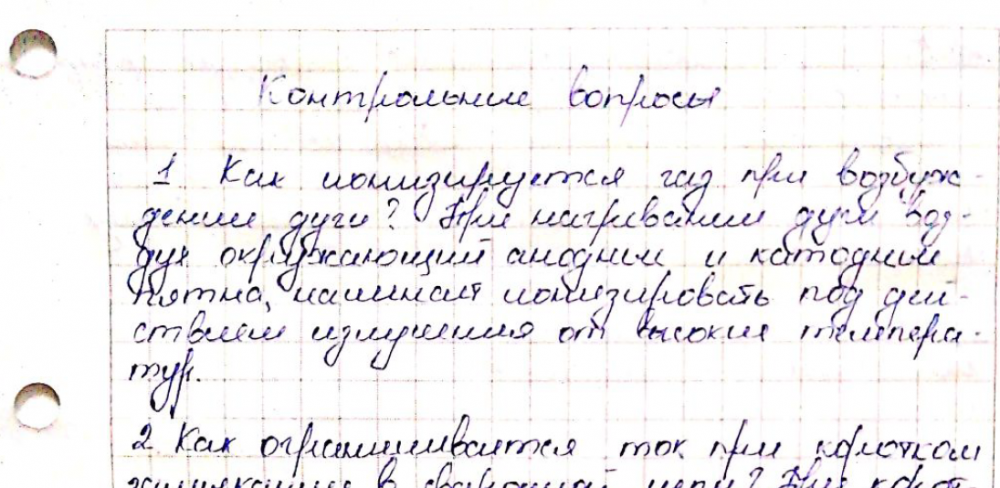 Контрольные вопросы
1 Как ионизируется газ при возбуж-
дении дуги? При нагревании дуги воз-
дух окружающий анодным и катодным
пятна, начинает ионизировать под дей-
ствием излучения от высоких темпера-
тур.
2 Как ограничивается ток при коротком
замыкании в сварочной цепи? При корот-